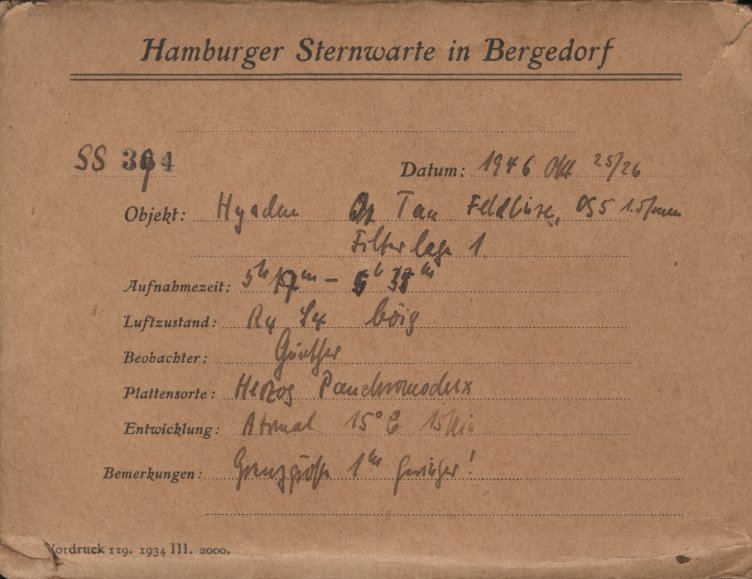 Hamburger Sternwarte in Bergedorf
SS 364
Datum: 1946 Okt 25/26
Objekt: Hyaden Tau Feldlinse, OG5 1.5mm
Filterlage 1.
Aufnahmezeit: 5h 17m - 5h 38m
Luftzustand: R4 S4 böig
Beobachter: Günther
Plattensorte: Herzog Panchromodux
Entwicklung: Atomal 15° C 15 Min
Bemerkungen: Grenzgröße 1m geringer!
Vordruck 119. 1934 III. 2000.